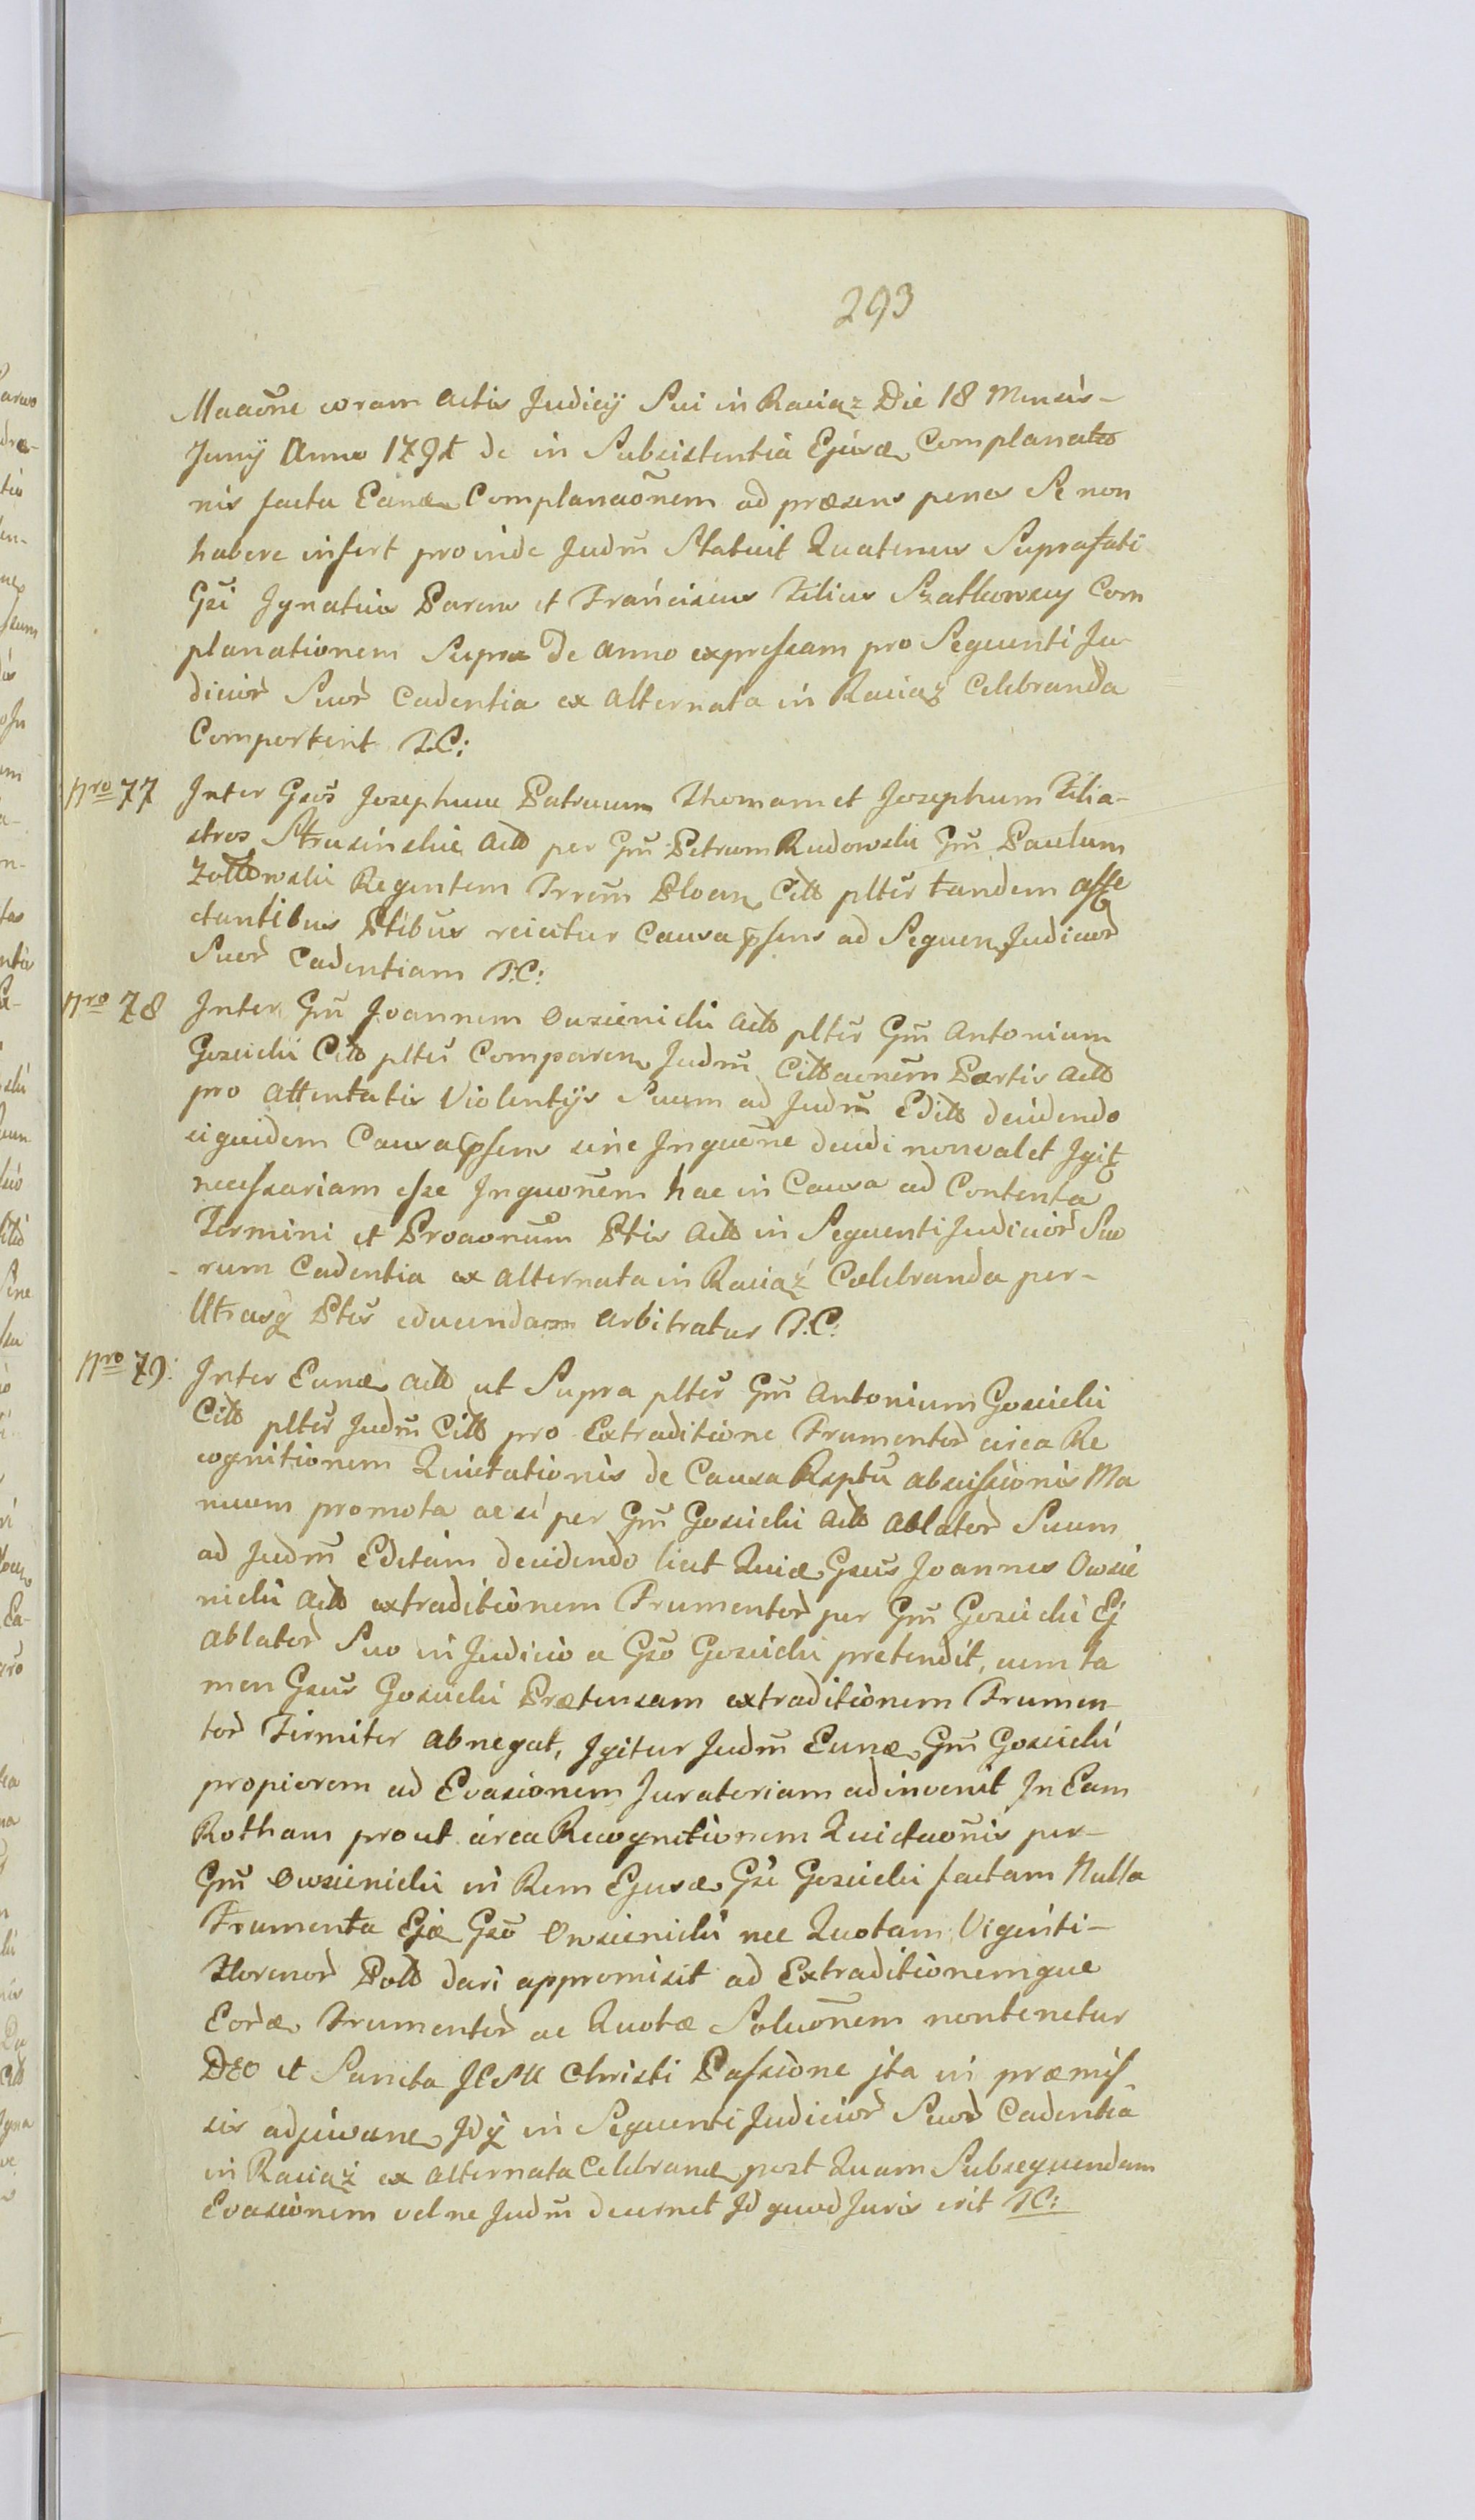 293
Maaõne coram Actis Judicÿ Sui in Raciąz Die 18 Mensis-
Junÿ Anno 1791 de in Subsistentia Ejusd. Complanatio
nis facta Eand. Complanaõnem ad præsens penes Se non
habere infert proinde Judm̃ Statuit Quatenus Suprafati
Gsi Ignatius Parens et Franciscus Filius Szatkowscy Com
planationem Supra De Anno expressam pro Sequenti Ju-
dicior Suor Cadentia ex Alternata in Raciąż Celebranda
Comportent P.C:
Nro 77 Inter Gsos Josephum Patruum Thomam et Josephum Filia-
stros Strusinskie Actt per Gm̃ Petrum Rudowski Gm̃ Paulum
Zołtowski Regentem Trrem̃ Plocen. Citt pltter tandem affe
ctantibus Ptibus reicitur Causa pſens ad Sequen. Judicior
Suor Cadentiam P.C:
Nro 78 Inter Gm̃ Joannem Owsienicki Actt plter Gm̃ Antonium
Goscicki Citt plter Comparen. Judm̃ Cittaonem Partis Actt
pro Attentatis Violentÿs Suum ad Judm̃ Editt decidendo
siquidem Causa pſens sine Inquõne decidi nonvalet Igit
necessariam esse Inquonem hac in Causa ad Contenta
Termini et Proaonum Ptis Actt in Sequenti Judicior Suo
rum Cadentia ex Alternata in Raciąż Cælebranda per-
Utrasq Ptes educendam arbitratur P.C:
Nro 79: Inter Eund. Actt ut Supra plter Gm̃ Antonium Goscicki
Citt plter Judm̃ Citt pro Extraditione Frumentor circa Re
cognitionem Quietationis de Causa Rsptu abscissionis Ma
nuum promota ac si per Gm̃ Goscicki Actt Ablator Suum
ad Judm̃ Editam decidendo licet Quid. Gsus Joannes Owsie
nicki Actt extraditionem Frumentor per Gm̃ Goscicki Ej
Ablator Suo in Judicio a Gso Goscicki pretendit, cum ta
men Gsus Goscicki Prætensam extraditionem Frumen-
tor Firmiter abnegat, Igitur Judm̃ Eund. Gm̃ Goscicki
propiorem ad Evasionem Juratoriam adinvenit In Eam
Rotham prout circa Recognitionem Quietaõnis per-
Gm̃ Owsienicki in Rem Ejusd. Gsi Goscicki factam Nulla
Frumenta Ejd. Gso Owsienicki nec Quotam Viginti-
Florenor Poll dari appromisit ad Extraditionemque
Eord. Frumentor ac Quotæ Soluõnem nontenetur
DEO et Sancta JESU Christi Passione jta in præmiſ-
sis adjuvane. Idq in Sequenti Judicior Suor Cadentia
in Raciąż ex Alternata Celebrand. post Quam Subsequendam
Evasionem vel ne Judm̃ decernet Id quod Juris erit PC: